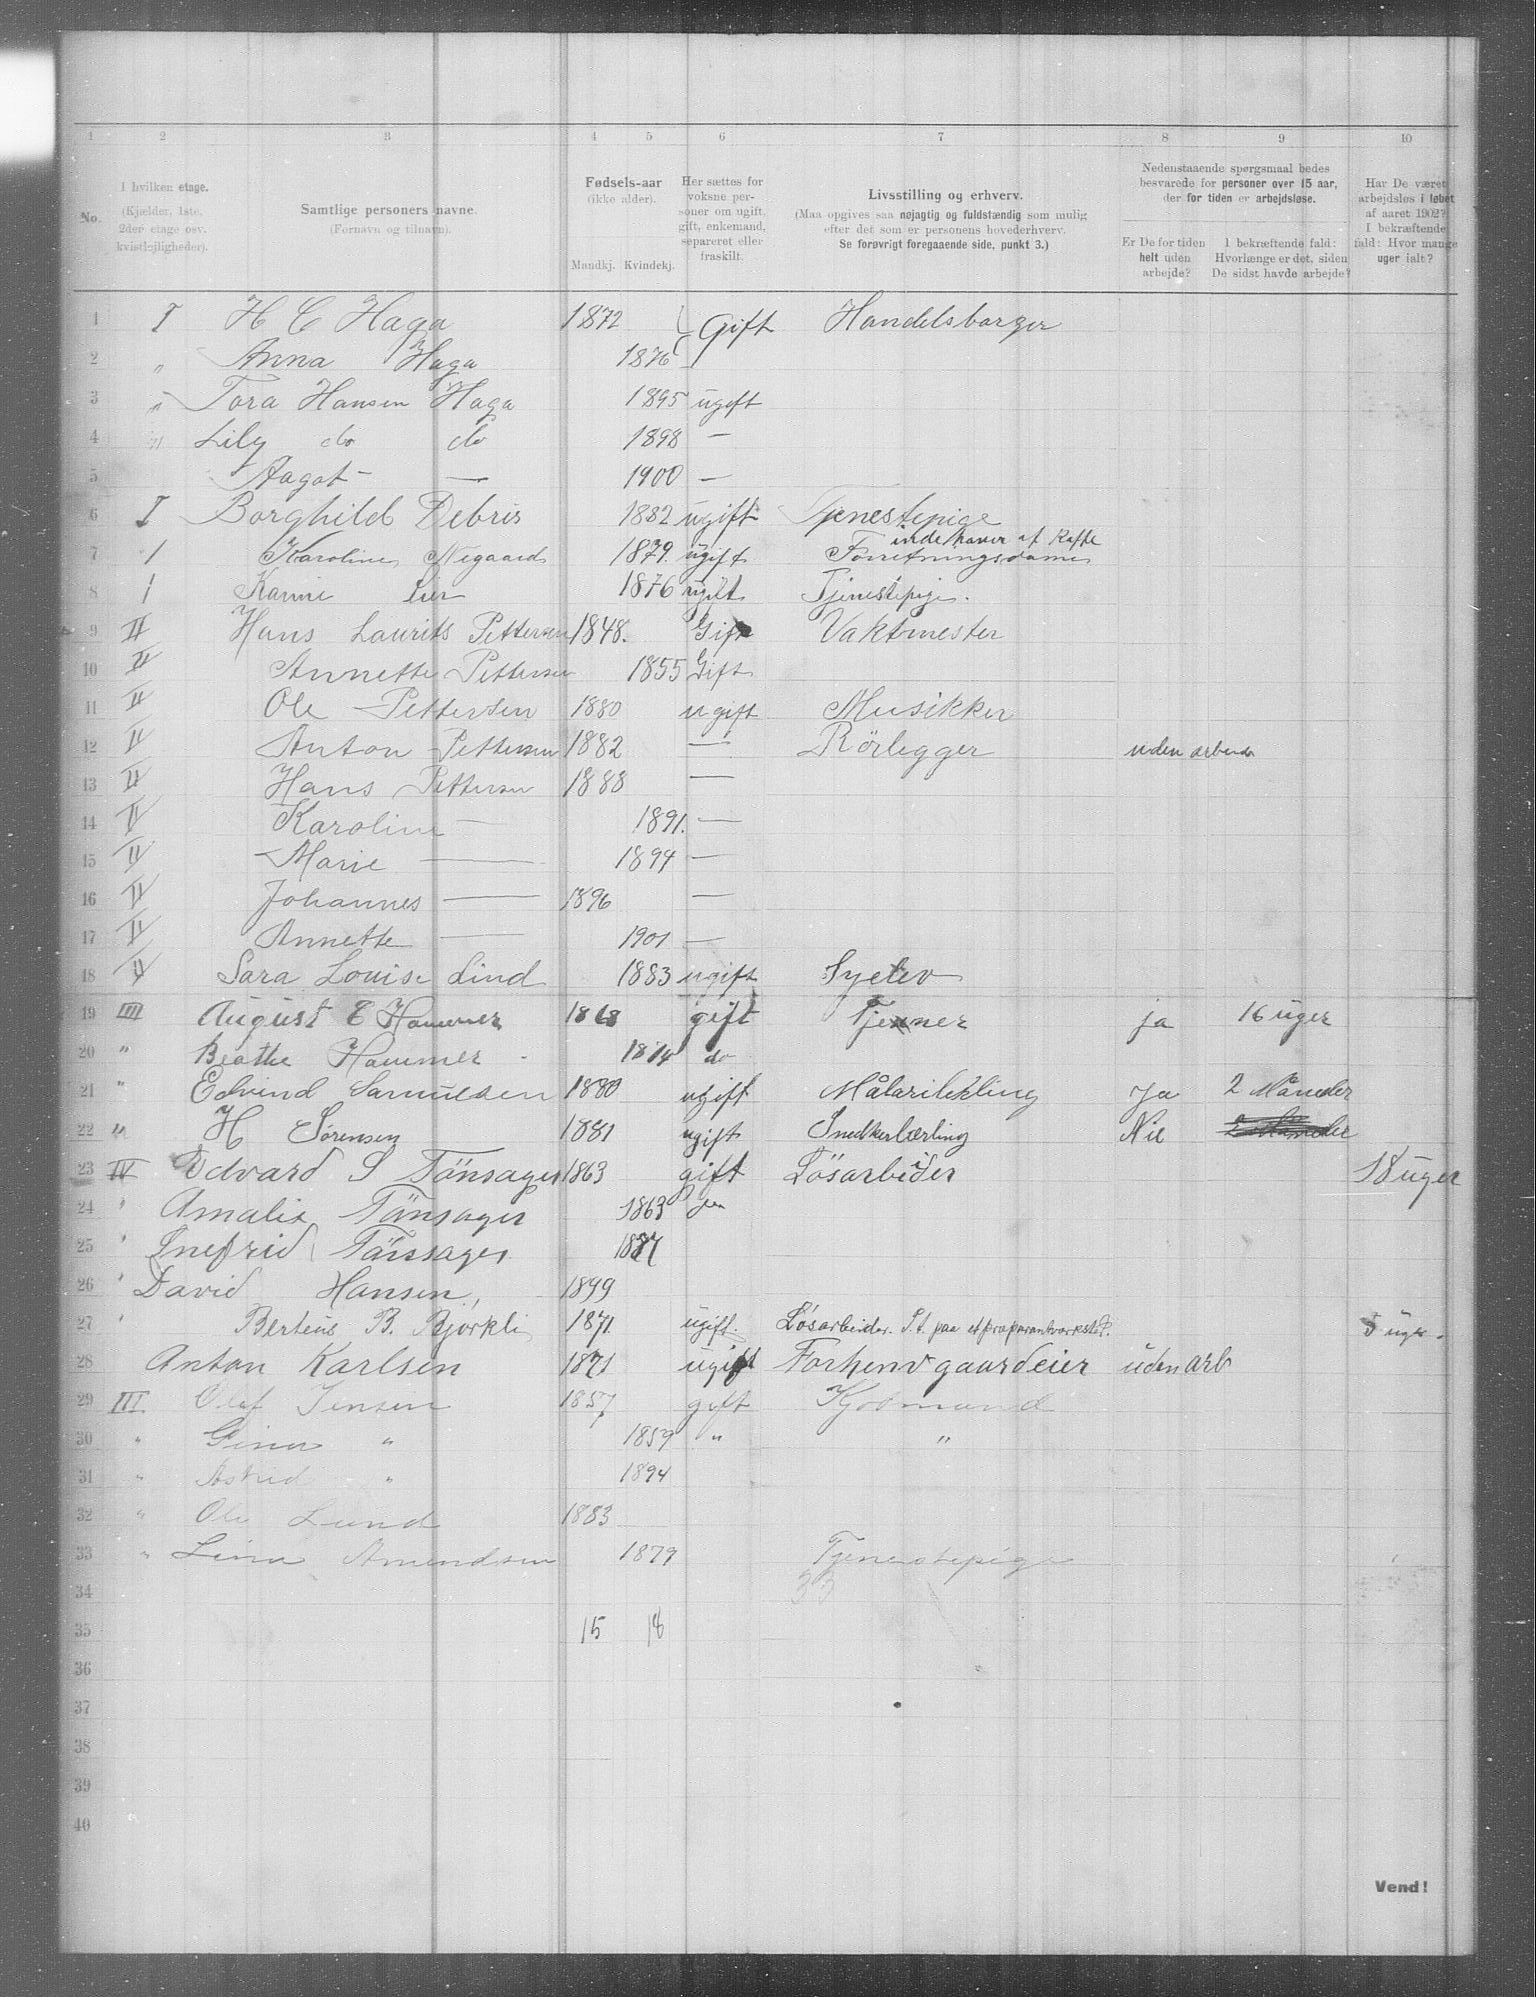 1 2 3 4 5 6 7 8 9 10
No.
I hvilken etage.
(Kjælder, 1ste,
2den etage osv.
kvistlejligheder).
Samtlige personers navne.
(Fornavn og tilnavn).
Fødsels-aar
(ikke alder).
Mandkj. Kvindekj.
Her sættes for
voksne per-
soner om ugift,
gift, enkemand,
separeret eller
fraskilt.
Livsstilling og erhverv.
(Maa opgives saa nøjagtig og fuldstændig som mulig
efter det som er personens hovederhverv.
Se forøvrigt foregaaende side, punkt 3.)
Nedenstaaende spørgsmaal bedes
besvarede for personer over 15 aar,
der for tiden er arbejdsløse.
Er De for tiden
helt uden
arbejde?
I bekræftende fald:
Hvorlænge er det, siden
De sidst havde arbejde?
Har De været
arbejdsløs i løbet
af aaret 1902?
I bekræftende
fald: Hvor mange
uger ialt?
1 I H C Haga 1872 Gift Handelsborger
2 " Anna Haga 1876
3 " Tora Hansen Haga 1895 ugift
4 " Lily do do 1898 —
5 Aagot — — 1900 —
6 I Borghild Debris 1882 ugift Tjenestepige
indehaver af Kaffe
7 1 Karoline Negaard 1879. ugift Forretningsdame
8 1 Karine Lier 1876 ugift Tjenestepige.
9 II Hans Laurits Pettersen 1848. Gift Vaktmester
10 II Annette Pettersen 1855 Gift
11 II Ole Pettersen 1880 ugift Musikker
12 II Anton Pettersen 1882 — Rörlegger uden arbeide
13 II Hans Pettersen 1888 —
14 II Karoline — 1891. —
15 II Marie — 1894 —
16 II Johannes — 1896 —
17 II Annette — 1901 —
18 II Sara Louise Lind 1883 ugift Syelev
19 III August E Hammer 1868 gift Tjener ja 16 uger
20 " Beathe Hammer 1874 do
21 " Edvind Samuelsen 1880 ugift Målarilekling Ja 2 Måneder
22 " H Sørensen 1881 ugift Snedkerlærling Nei 2 Måneder
23 IV Edvard S Tönsager 1863 gift Lösarbeider 18 uger
24 " Amalie Tönsager 1863
25 " Tönsager
26 " David Hansen 1899
27 " Berteus B. Bjørkli 1871 ugift. Løsarbeider. S.t. paa et præparantværksted. 5 uger.
28 Anton Karlsen 1871 ugift Forhenv gaardeier uden arb
29 III Olaf Jensen 1857 gift Kjøbmand
30 " Gina " 1859 " "
31 " Astrid " 1894
32 " Ole Lund 1883
33 " Lina Amundsen 1879 Tjenestepige
34 33
35 15 18
36
37
38
39
40
Vend!